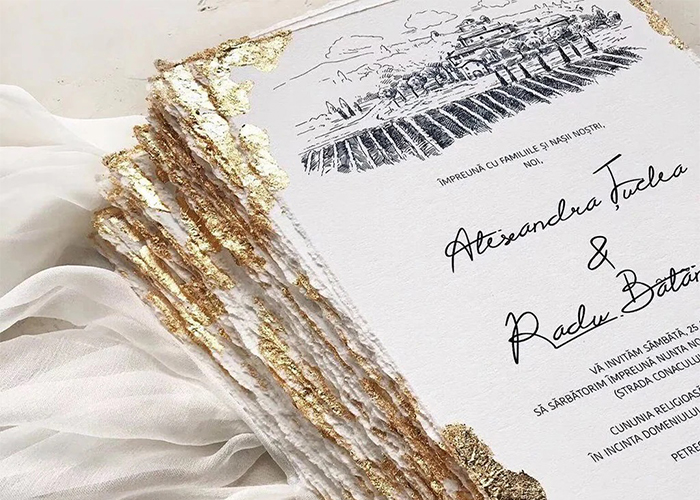 ÎMPREUNĂ CU FAMILIILE ȘI NAȘII NOȘTRI,
NOI,
Alexandra Țuclea
&
Radu
VĂ INVITĂM SÂMBĂTĂ, 25
SĂ SĂRBĂTORIM ÎMPREUNĂ NUNTA
(STRADA CONACULUI
CUNUNIA RELIGIOASĂ
ÎN INCINTA DOMENIULUI